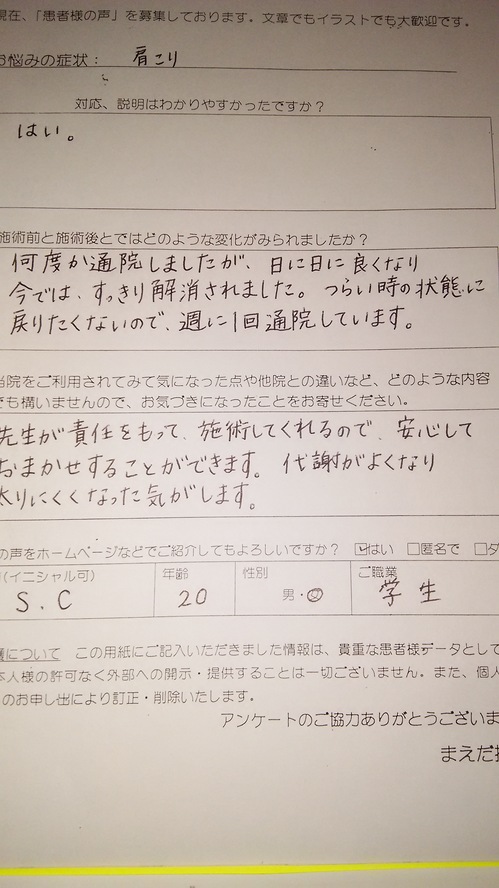 現在、「患者様の声」を募集しております。文章でもイラストでも大歓迎です。
お悩みの症状： 肩こり
対応、説明はわかりやすかったですか？
はい。
施術前と施術後とではどのような変化がみられましたか？
何度か通院しましたが、日に日に良くなり
今では、すっきり解消されました。つらい時の状態に
戻りたくないので、週に1回通院しています。
当院をご利用されてみて気になった点や他院との違いなど、どのような内容
でも構いませんので、お気づきになったことをお寄せください。
先生が責任をもって、施術してくれるので、安心して
おまかせすることができます。代謝がよくなり
太りにくくなった気がします。
の声をホームページなどでご紹介してもよろしいですか？ ☑はい □匿名で □ダ
(イニシャル可) 年齢 性別 ご職業
S.C 20 男・ 学生
について この用紙にご記入いただきました情報は、貴重な患者様データとして
本人様の許可なく外部への開示・提供することは一切ございません。また、個人
のお申し出により訂正・削除いたします。
アンケートのご協力ありがとうございま
まえだ